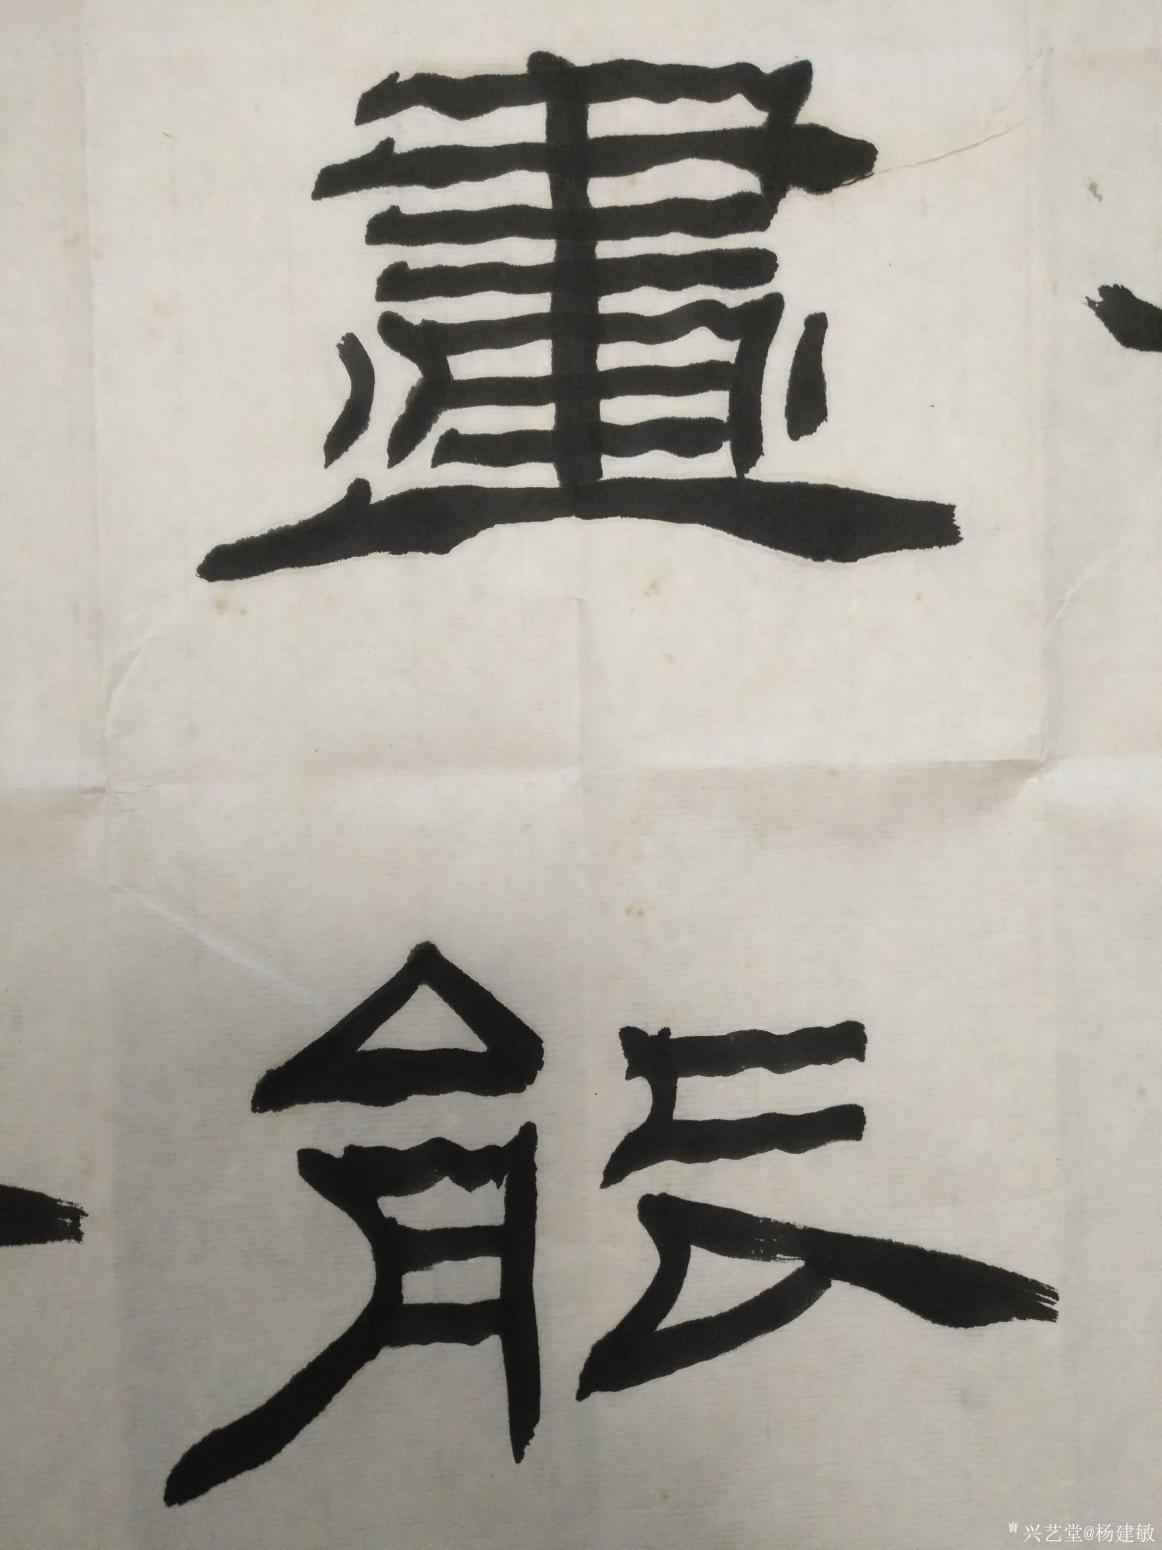 畫
能
兴艺堂@杨建敏